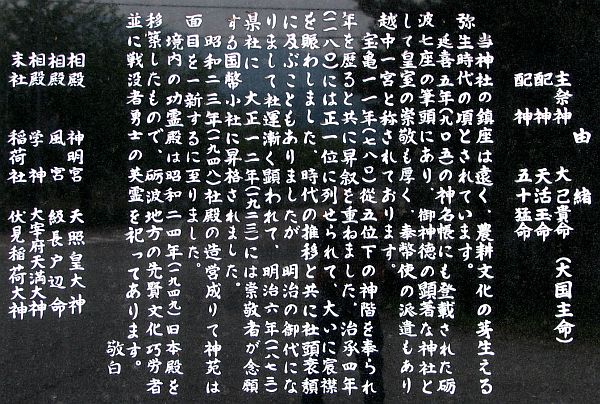 由緒
主祭神 大己貴命(大国主命)
配神 天活玉命
配神 五十猛命
当神社の鎮座は遠く、農耕文化の芽生える
弥生時代の頃とされています。
延喜五年(九〇五)の神名帳にも登載された砺
波七座の筆頭にあり、御神徳の顕著な神社と
して皇室の崇敬も厚く、奉幣使の派遣もあり
越中一宮と称されております。
宝亀一一年(七八〇)従五位下の神階を奉られ
年を歴ると共に昇叙を重ねました。治承四年
(一一八〇)には正一位に列せられて、大いに宸襟
を賑わしました。時代の推移と共に社頭衰頽
に及ぶこともありましたが、明治の御代にな
りまして社運漸く顕われて、明治六年(一八七三)
県社に、大正一二年(一九二三)には崇敬者が念願
する国幣小社に昇格されました。
昭和二三年(一九四八)社殿の造営成りて神苑は
面目を一新するに至りました。
境内の功霊殿は昭和二四年(一九四九)旧本殿を
移築したもので、砺波地方の先賢文化巧労者
並に戦没者勇士の英霊を祀ってあります。
敬白
相殿 神明宮 天照皇大神
相殿 風宮 級長戸辺命
相殿 学神 大宰府天満大神
末社 稲荷社 伏見稲荷大神